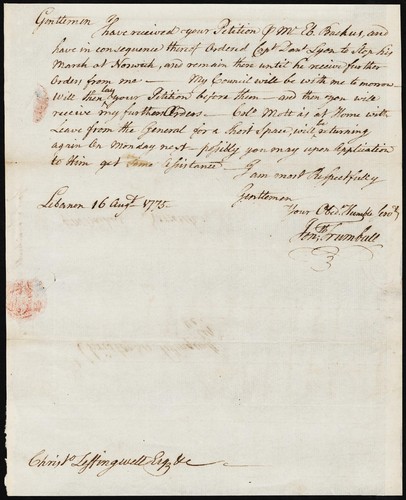 Gentlemen
I have received your Petition ℔ Mr Eb. Backus, and
have in consequence thereof Ordered Capt Danl Lyon to Stop his
March at Norwich, and remain there until he receive further
Orders from me — My Council will be with me to morrow
Will then lay your Petition before them — and then you will
receive my further Orders — Colo Mott is at Home with
Leave from the General for a short Space, with returning
again On Monday next — possibly you may upon Application
to Him get some Assistance — I am most Respectfully
Gentlemen
Your Obedt Humble Servt
Lebanon 16 Augt 1775
Jonth Trumbull
Christo Leffingwell Esqr &c